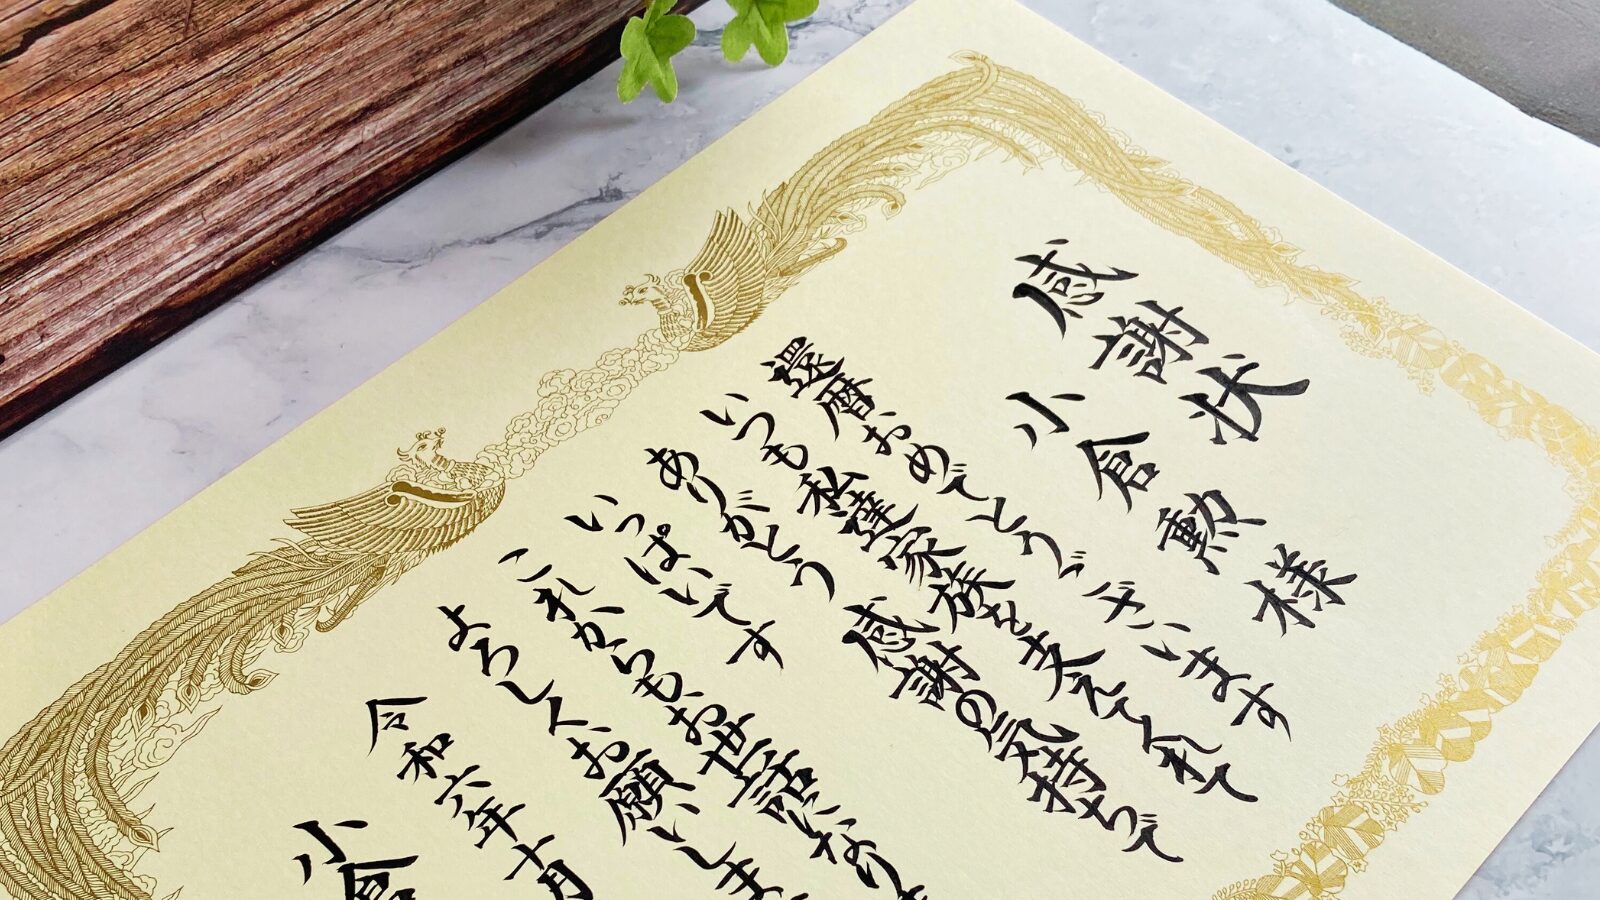 感謝状
小倉勲様
還暦おめでとうございます
いつも私達家族を支えてくれて
ありがとう 感謝の気持ちで
いっぱいです
これからもお世話になりま
よろしくお願いしま
令和六年十月
小倉